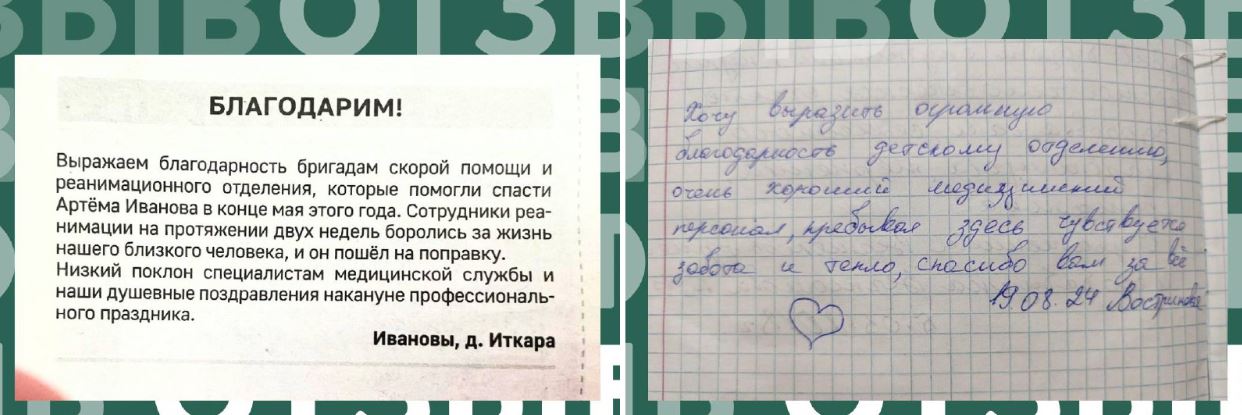 БЛАГОДАРИМ!
Выражаем благодарность бригадам скорой помощи и
реанимационного отделения, которые помогли спасти
Артёма Иванова в конце мая этого года. Сотрудники реа-
нимации на протяжении двух недель боролись за жизнь
нашего близкого человека, и он пошёл на поправку.
Низкий поклон специалистам медицинской службы и
наши душевные поздравления накануне профессиональ-
ного праздника.
Ивановы, д. Иткара
Хочу выразить огромную
благодарность детскому отделению,
очень хороший медицинский
персонал, пребывая здесь чувствуется
забота и тепло, спасибо вам за всё
19.08.24